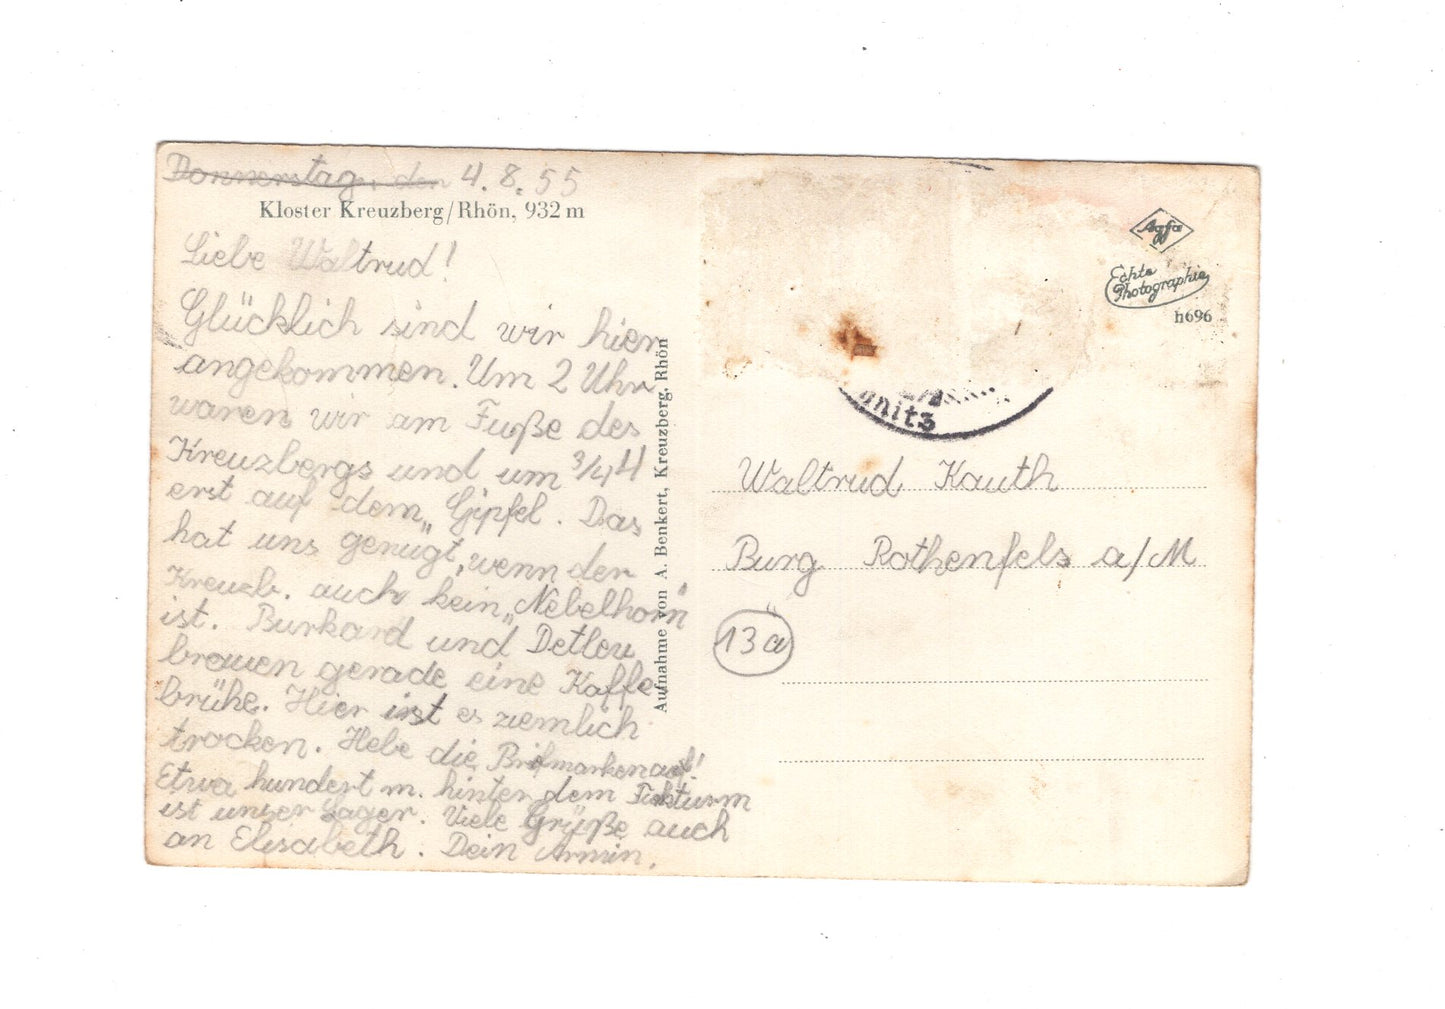 Donnerstag, den 4.8.55
Kloster Kreuzberg/Rhön, 932 m
Liebe Waltrud!
Glücklich sind wir hier
angekommen. Um 2 Uhr
waren wir am Fuße des
Kreuzbergs und um 3/4 4
erst auf dem „Gipfel. Das
hat uns genügt, wenn der
Kreuzb. auch kein „Nebelhorn"
ist. Burkard und Detlev
brauen gerade eine Kaffe
brühe. Hier ist es ziemlich
trocken. Hebe die Brifmarken auf!
Etwa hundert m. hinter dem Funkturm
ist unser Lager. Viele Grüße auch
an Elisabeth. Dein Armin.
Aufnahme von A. Benkert, Kreuzberg, Rhön
Agfa
Echte
Photographie
h696
nitz
Waltrud Kauth
Burg Rothenfels a/M
13a